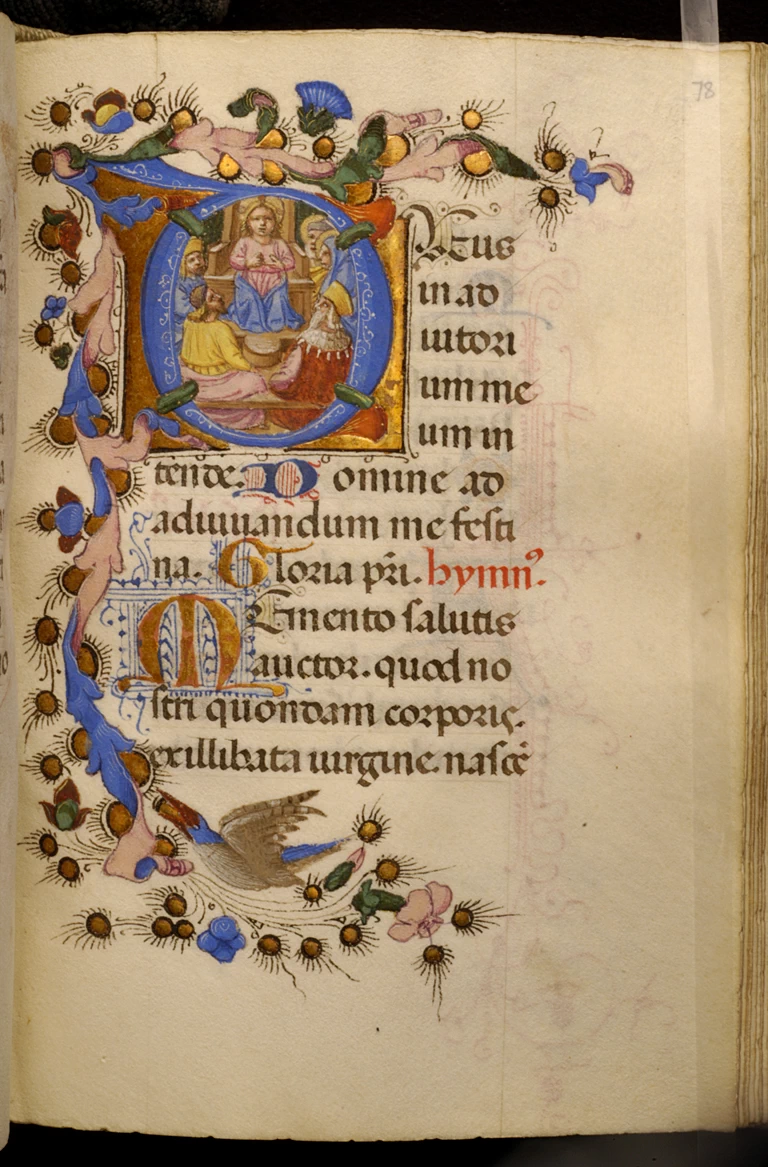 78
DEus
in ad
iutori
um me
um in
tende. Domine ad
adiuuandum me festi
na. Gloria pri. hymn⁹.
MEmento salutis
auctor. quod no
stri quondam corporis.
exillibata uirgine. nascē